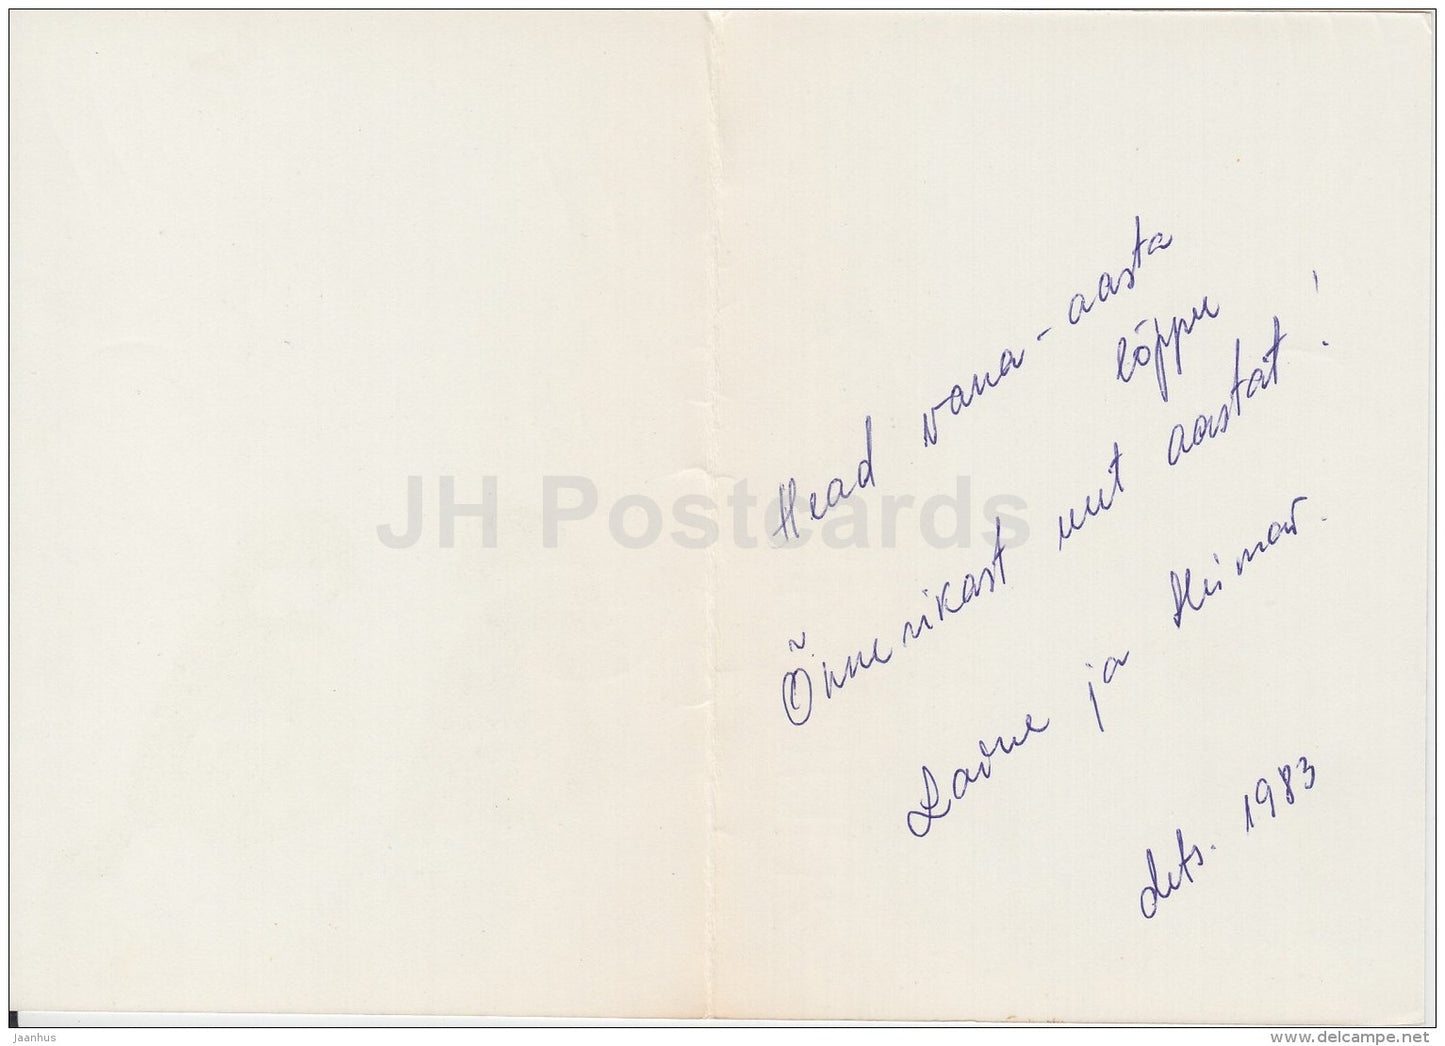 Head vana-aasta
lõppu
Õnnerikast uut aastat!
Laine ja Hiimar.
dets. 1983
JH Postcards
jaanhus
www.delcampe.net